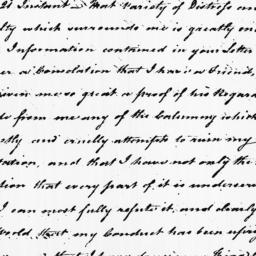 21 Instant — That Variety of Distress an
lty which surrounds me is greatly en
Information contained in your Letter
er a Consolation that I have a Friend,
given me so great a proof of his Regard
de from me any of the Calumny which
stly and cruelly attempts to ruin my
tation, and that I have not only the
tion that every part of it is undeserv
I can most fully refute it, and clearly
World that my Conduct has been upri